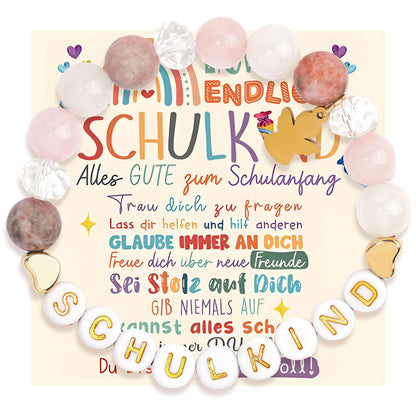 ENDLICH
SCHULKIND
Alles GUTE zum Schulanfang
Trau dich zu fragen
Lass dir helfen und hilf anderen
GLAUBE IMMER AN DICH
Freue dich über neue Freunde
Sei Stolz auf Dich
GIB NIEMALS AUF
kannst alles scha
immer DU
Du
toll!
SCHULKIND